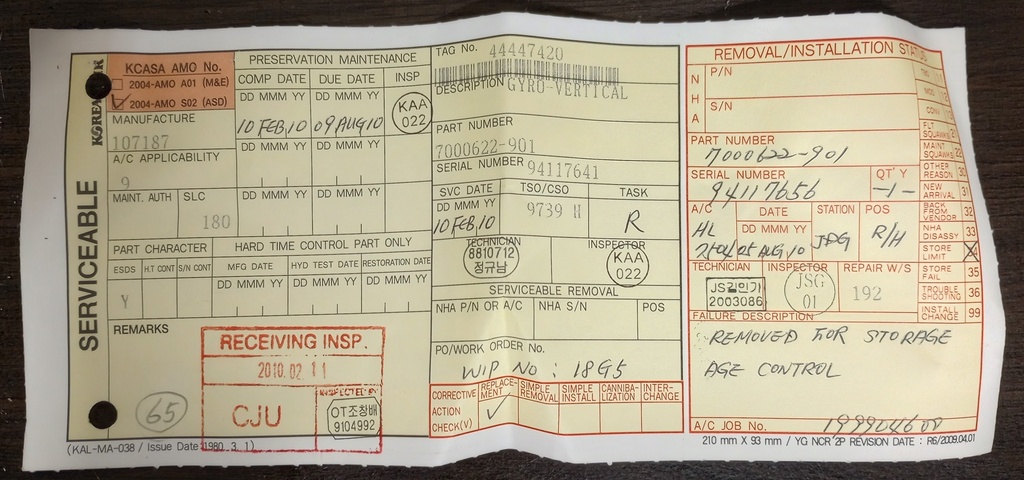 SERVICEABLE
KCASA AMO No.
2004-AMO A01 (M&E)
2004-AMO S02 (ASD)
MANUFACTURE
107187
A/C APPLICABILITY
9
MAINT. AUTH
SLC
180
PRESERVATION MAINTENANCE
COMP DATE DUE DATE INSP
DD MMM YY DD MMM YY
10 FEB,10 09 AUG,10
KAA
022
DD MMM YY DD MMM YY
DD MMM YY DD MMM YY
PART CHARACTER
HARD TIME CONTROL PART ONLY
ESDS H.T CONT S/N CONT MFG DATE HYD TEST DATE RESTORATION DATE
Y
DD MMM YY DD MMM YY DD MMM YY
REMARKS
RECEIVING INSP.
2010.02.11
CJU
INSPECTED BY
OT조창배
9104992
65
(KAL-MA-038 / Issue Date:1980. 3. 1)
TAG No. 44447420
DESCRIPTION GYRO-VERTICAL
PART NUMBER
7000622-901
SERIAL NUMBER 94117641
SVC DATE TSO/CSO TASK
DD MMM YY
10 FEB,10
9739 H
R
TECHNICIAN
8810712
정규남
INSPECTOR
KAA
022
SERVICEABLE REMOVAL
NHA P/N OR A/C NHA S/N POS
PO/WORK ORDER No.
WIP No : 18G5
CORRECTIVE ACTION CHECK(V)
REPLACE-MENT
SIMPLE REMOVAL
SIMPLE INSTALL
CANNIBA-LIZATION
INTER-CHANGE
REMOVAL/INSTALLATION
NHA
P/N
S/N
PART NUMBER
7000622-901
SERIAL NUMBER QT' Y
94117656 -1-
A/C DATE STATION POS
HL
DD MMM YY
05 AUG,10
R/H
TECHNICIAN INSPECTOR REPAIR W/S
JS김인가
2003086
JSG
01
192
FLT SQUAWKS
MAINT SQUAWKS
OTHER REASON 30
NEW ARRIVAL 31
BACK FROM VENDOR 32
NHA DISASSY 33
STORE LIMIT
STORE FAIL 35
TROUBLE SHOOTING 36
INSTALL CHANGE 99
FAILURE DESCRIPTION
REMOVED FOR STORAGE
AGE CONTROL
A/C JOB No.
210 mm X 93 mm / YG NCR 2P REVISION DATE : R6/2009.04.01